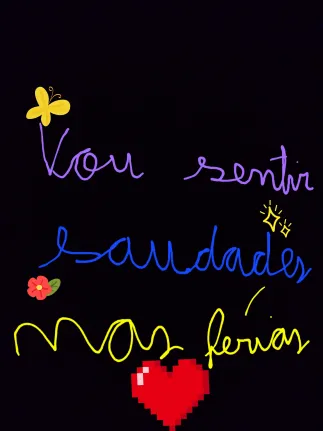 Vou sentir
saudades
nas férias